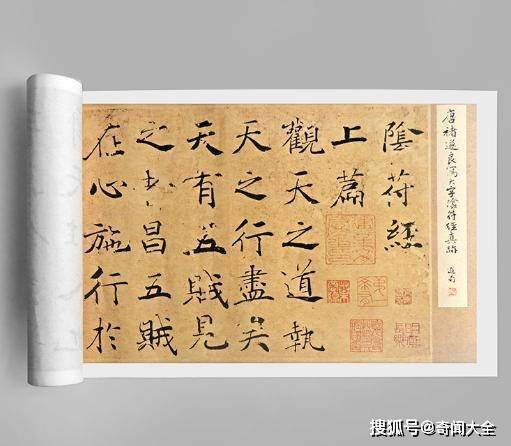 唐褚遂良寫大字陰符經真跡 遐翁
陰符經
上篇
觀天之道執
天之行盡矣
天有五賊見
之者昌五賊
在心施行於
搜狐号@奇闻大全